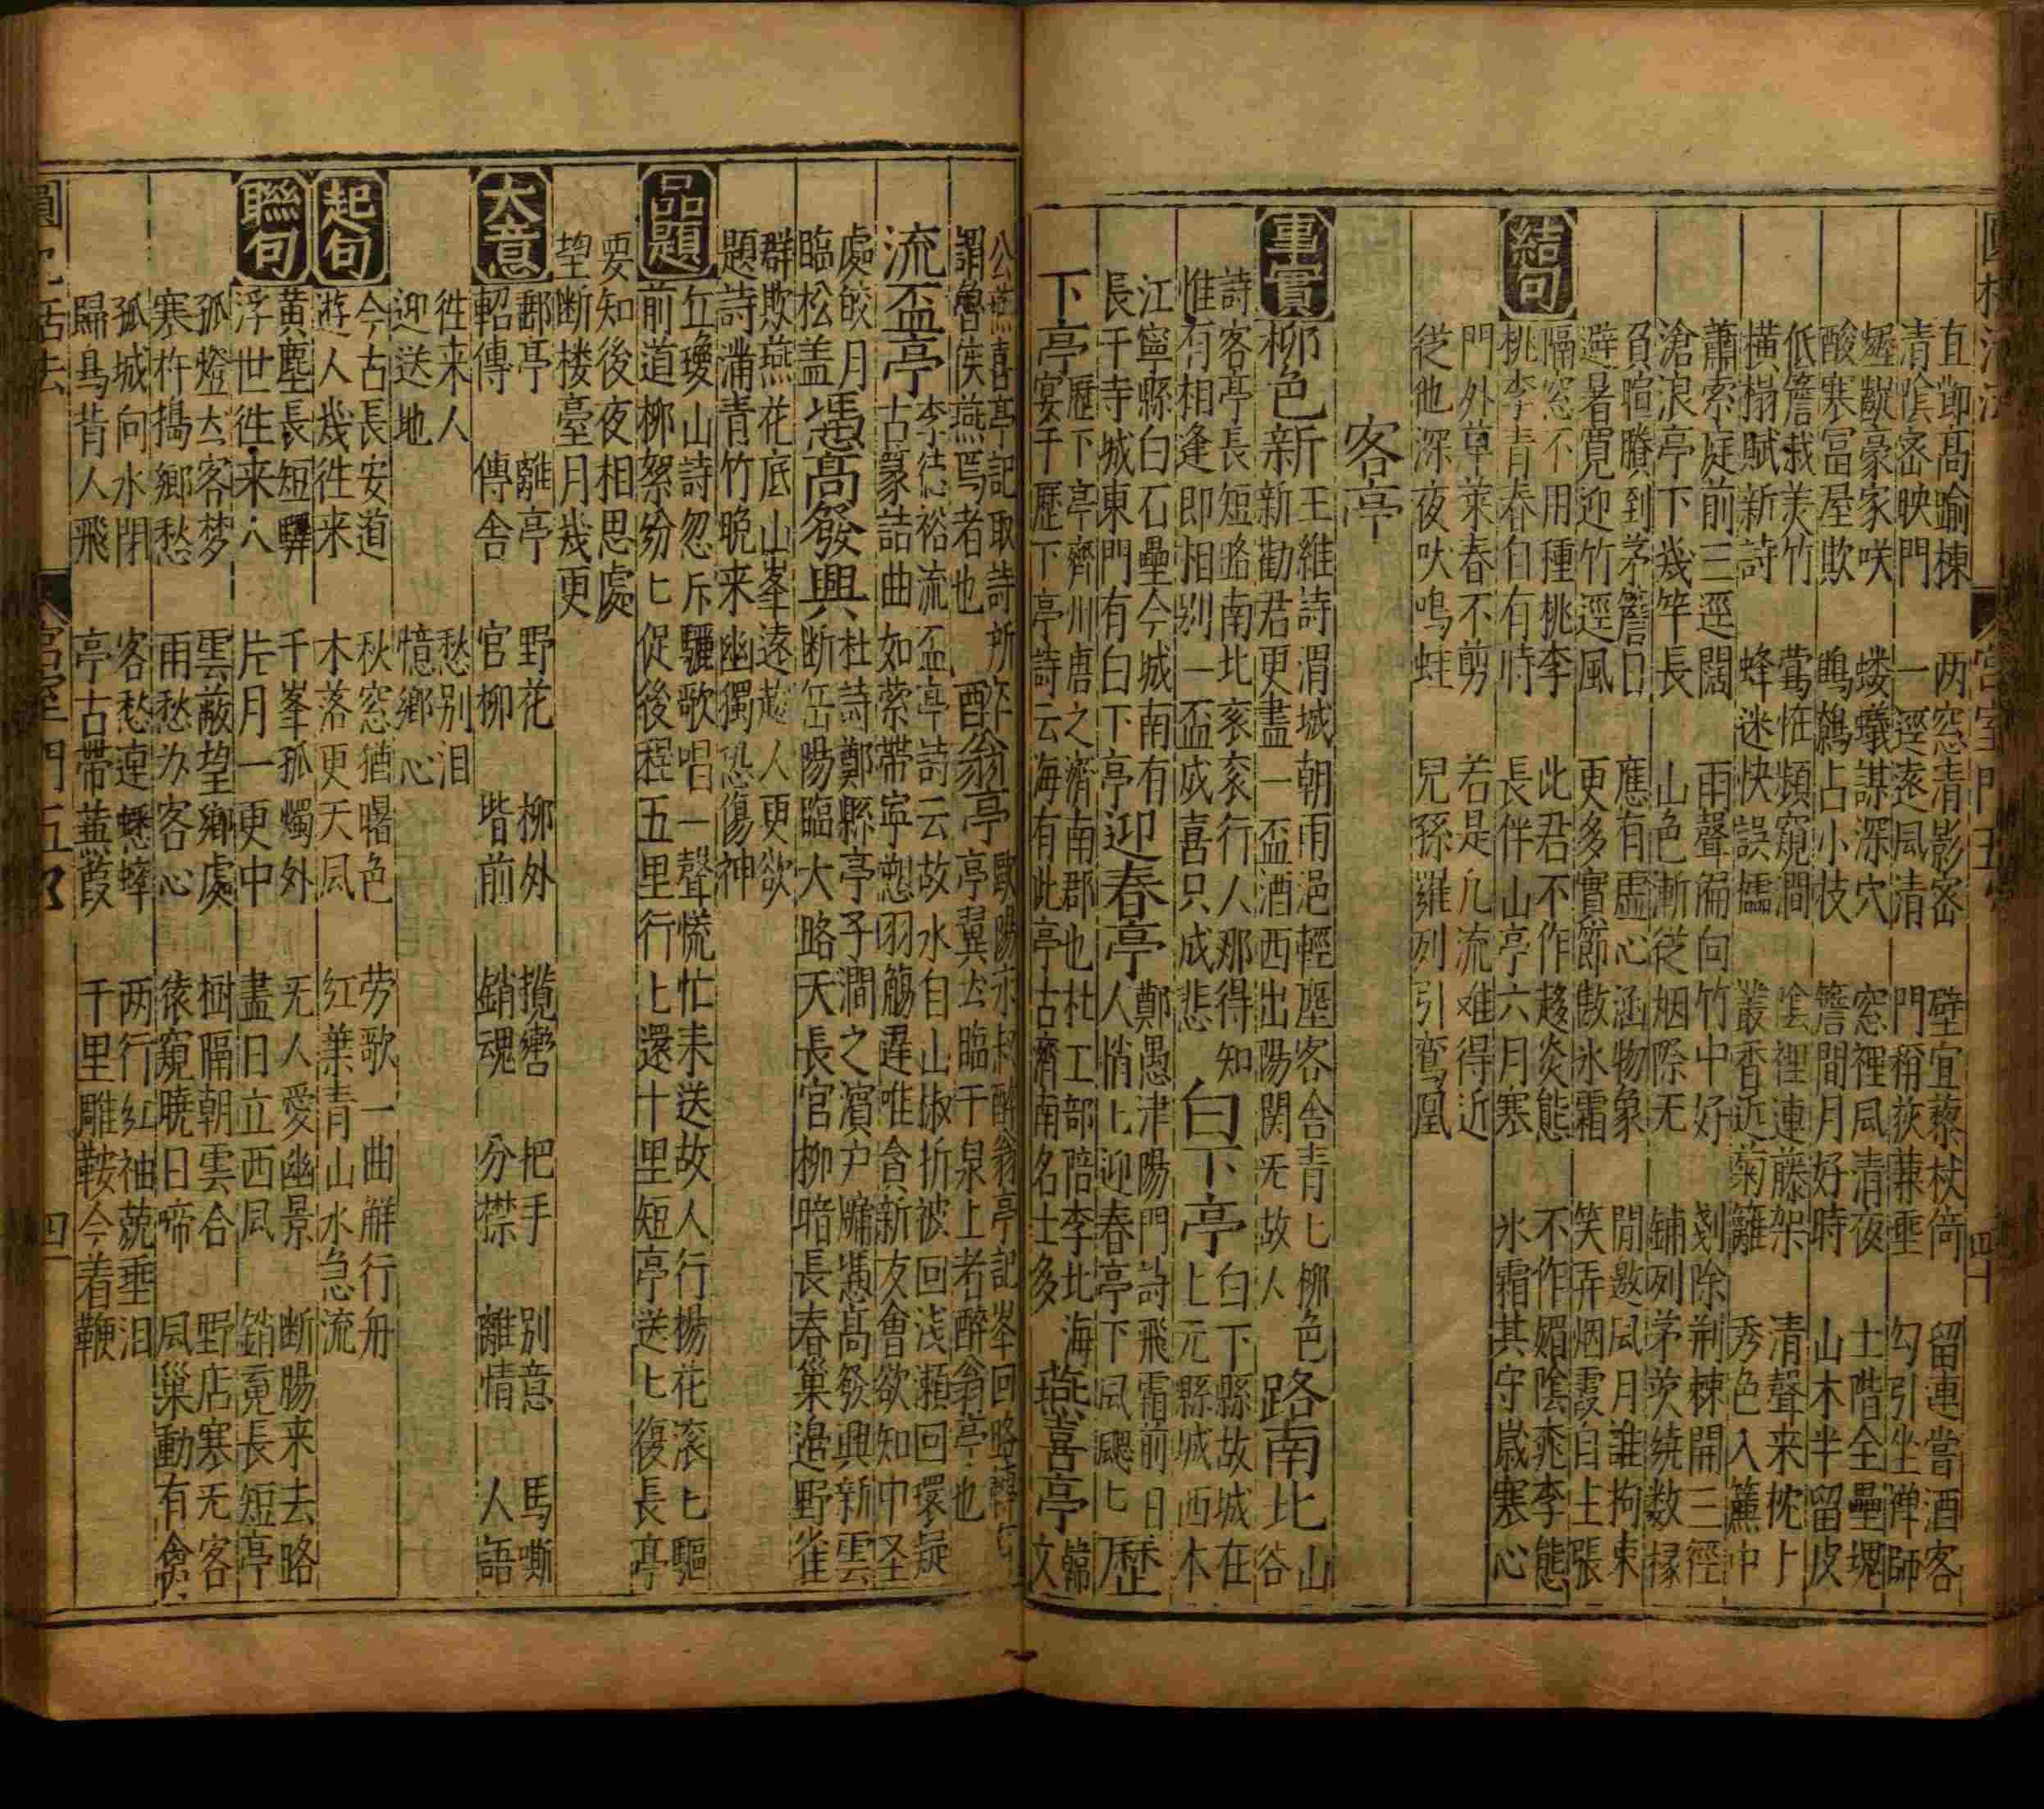 宮室門五 四十
直節高踰棟 两窓清影密 壁宜藜杖倚 留連當酒客
清陰密映門 一逕遠風清 門稱荻蒹垂 勾引坐禅師
蝼蟻謀深穴 窓裡風清夜 土階全壘塊
酸寒冨屋欺 鷦鷯占小枝 簷間月好時 山木半留皮
低簷栽美竹 鶯恠頻窺澗 陰裡連藤架 清聲来枕上
横榻賦新詩 蜂迷快誤檽 叢香近菊籬 秀色入簾中
蕭索庭前三逕闊 雨聲徧向竹中好 剗除荆棘開三徑
滄浪亭下幾竿長 山色漸從烟際无 鋪列茅茨繞数椽
負暄臢到茅簷日 應有虛心涵物象 閒邀風月誰拘束
避暑寛迎竹逕風 更多實節傲氷霜 笑弄烟霞自主張
隔窓不用種桃李 此君不作趍炎態 不作媚陰桃李態
結句
桃李青春自有時 長伴山亭六月寒 氷霜其守歳寒心
門外草莱春不剪 若是凢流难得近
從他深夜吠鳴蛙 兒孫羅列引鸞凰
客亭
事實
柳色新 王維詩渭城朝雨浥輕塵客舍青〻柳色
新勸君更盡一盃酒西出陽関无故人
路南北 山谷
詩客亭長短路南北衮衮行人那得知
惟有相逢即相别一盃成喜只成悲
白下亭 白下縣故城在
上元縣城西本
江寧縣白石壘今城南有
長干寺城東門有白下亭
迎春亭 鄭愚津陽門詩飛霜前日
人悄上迎春亭下風颸〻
歷
下亭 歷下亭齊州唐之濟南郡也杜工部陪李北海
宴千歷下亭詩云海有此亭古濟南名士多
燕喜亭 韓
文
公燕喜亭記取詩所
謂魯侯燕喜者也
醉翁亭 歐陽永叔醉翁亭記峯回路轉有
亭翼然臨于泉上者醉翁亭也
流盃亭 李徳裕流盃亭詩云故水自山椒折被回浅瀬回環疑
古篆詰曲如萦帯寕愬羽觴遅唯貪新友會欲知中圣
處皎月
臨松盖
憑高發興 杜詩鄭縣亭子澗之濱户牖憑高發興新雲
断岳陽臨大路天長官柳暗長春巢邉野雀
群欺燕花底山峯遠趂人更欲
題詩滿青竹晩来幽獨恐傷神
品題
丘瓊山詩忽斥驪歌唱一聲慌忙未送故人行楊花滚〻驅
前道柳絮紛〻促後程五里行〻還十里短亭送〻復長亭
要知後夜相思處
望断楼臺月幾更
大意
郵亭 離亭 野花 柳外 攬轡 把手 别意 馬嘶
軺傳 傳舍 官柳 堦前 銷魂 分襟 離情 人語
徃来人 愁别泪
迎送地 憶鄉心
起句
今古長安道 秋窓猶曙色 劳歌一曲觧行舟
遊人幾徃来 木落更天風 红葉青山水急流
聯句
黄塵長短驛 千峯孤燭外 无人愛幽景 断腸来去路
浮世徃来人 片月一更中 盡日立西風 銷䰟長短亭
孤燈去客梦 雲蔽望鄉處 樹隔朝雲合 野店寒无客
寒杵搗鄉愁 雨愁为客心 猿窺曉日啼 風巢動有禽
孤城向水閉 客愁連蟋蟀 两行红袖兢垂泪
歸鳥背人飛 亭古帯蒹葭 千里雕鞍今着鞭
宮室門五 四一